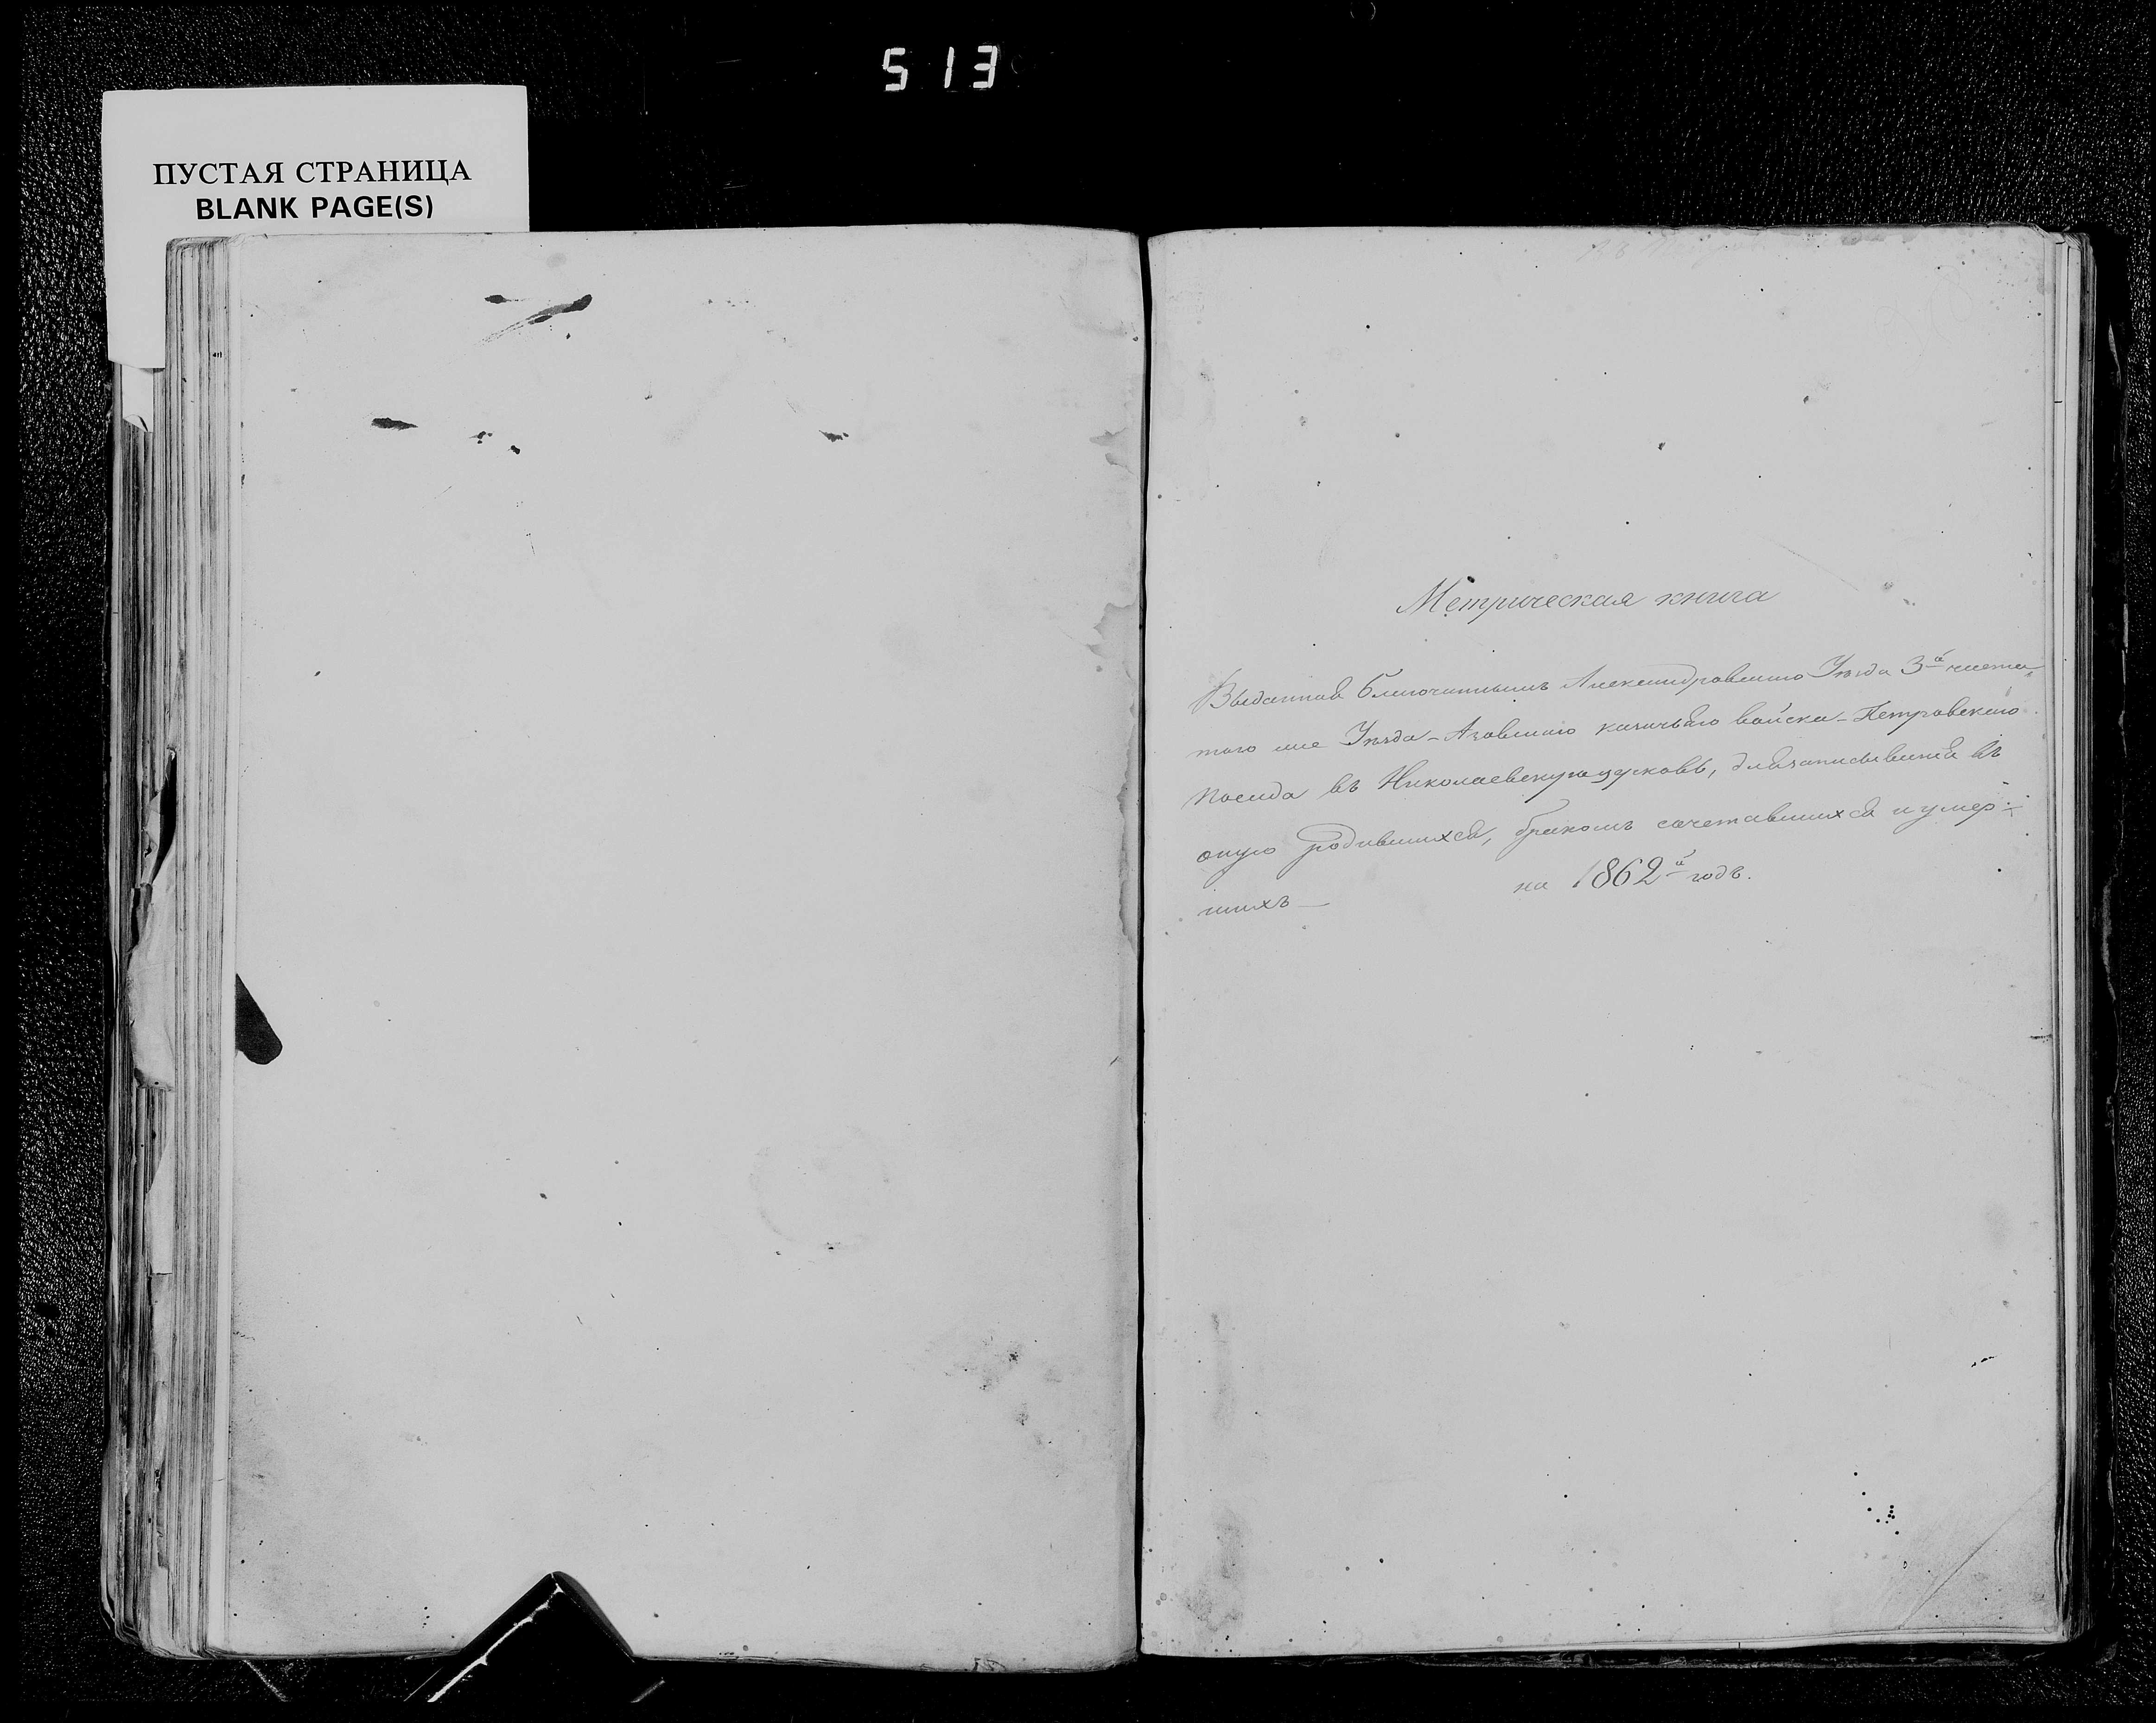 513
ПУСТАЯ СТРАНИЦА
BLANK PAGE(S)
Метрическая книга
Выданная благочиннымъ Александровскаго Уѣзда 3й части
того же Уѣзда - Азовскаго казачьяго войска - Петровскаго
посада въ Николаевскую церковь, для записыванія въ
оную родившихся, бракомъ сочетавшихся и умер-
шихъ — на 1862й годъ.